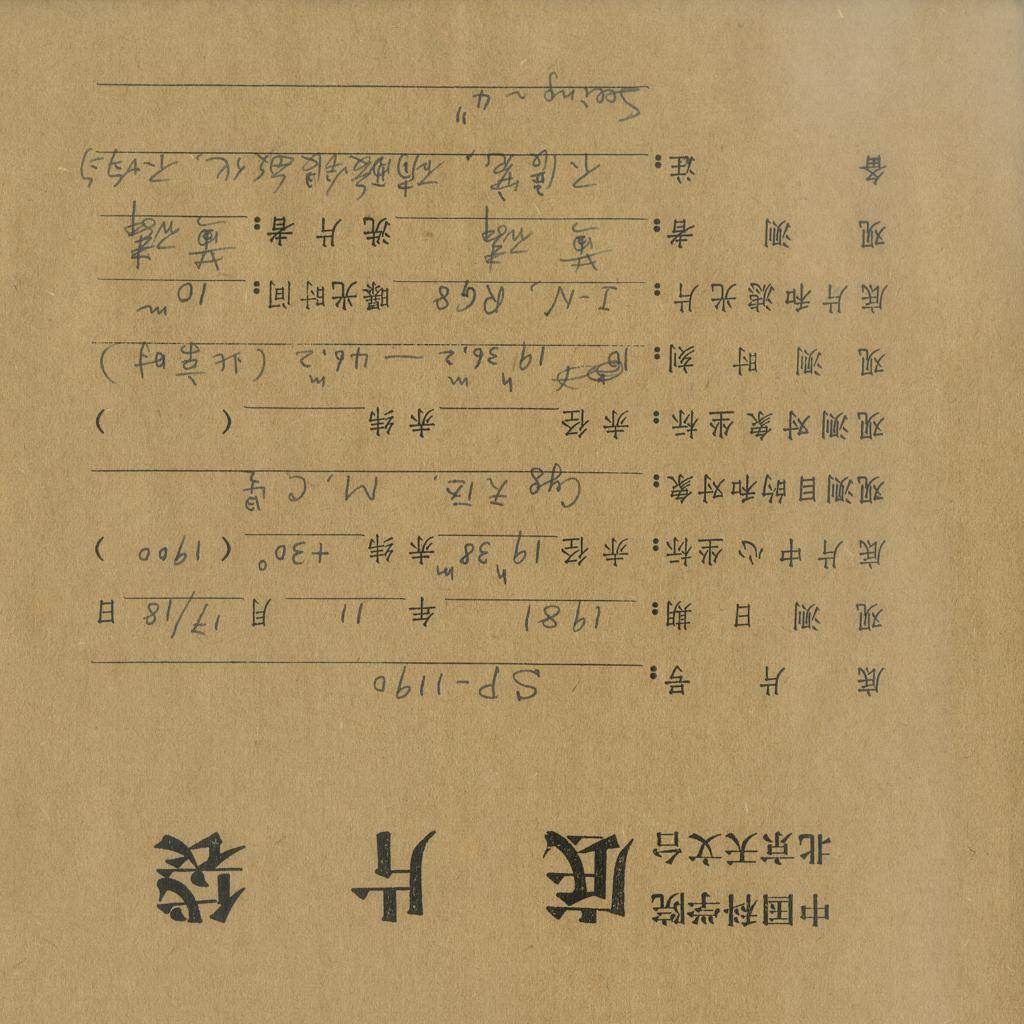 中国科学院
北京天文台 底片袋
底片号: SP-1190
观测日期: 1981 年 11 月 17/18 日
底片中心坐标: 赤径 19h38m 赤纬 +30° ( 1900 )
观测目的和对象: Cyg8 天区, M, C 星
观测对象坐标: 赤径 赤纬 ( )
观测时刻: 19h36.2m — 46.2m (北京时)
底片和滤光片: I-N, RG8 曝光时间: 10m
观测者: 黄 洗片者: 黄
备注: 不 , 硝酸银敏化, 不均匀
Seeing ~ 4"